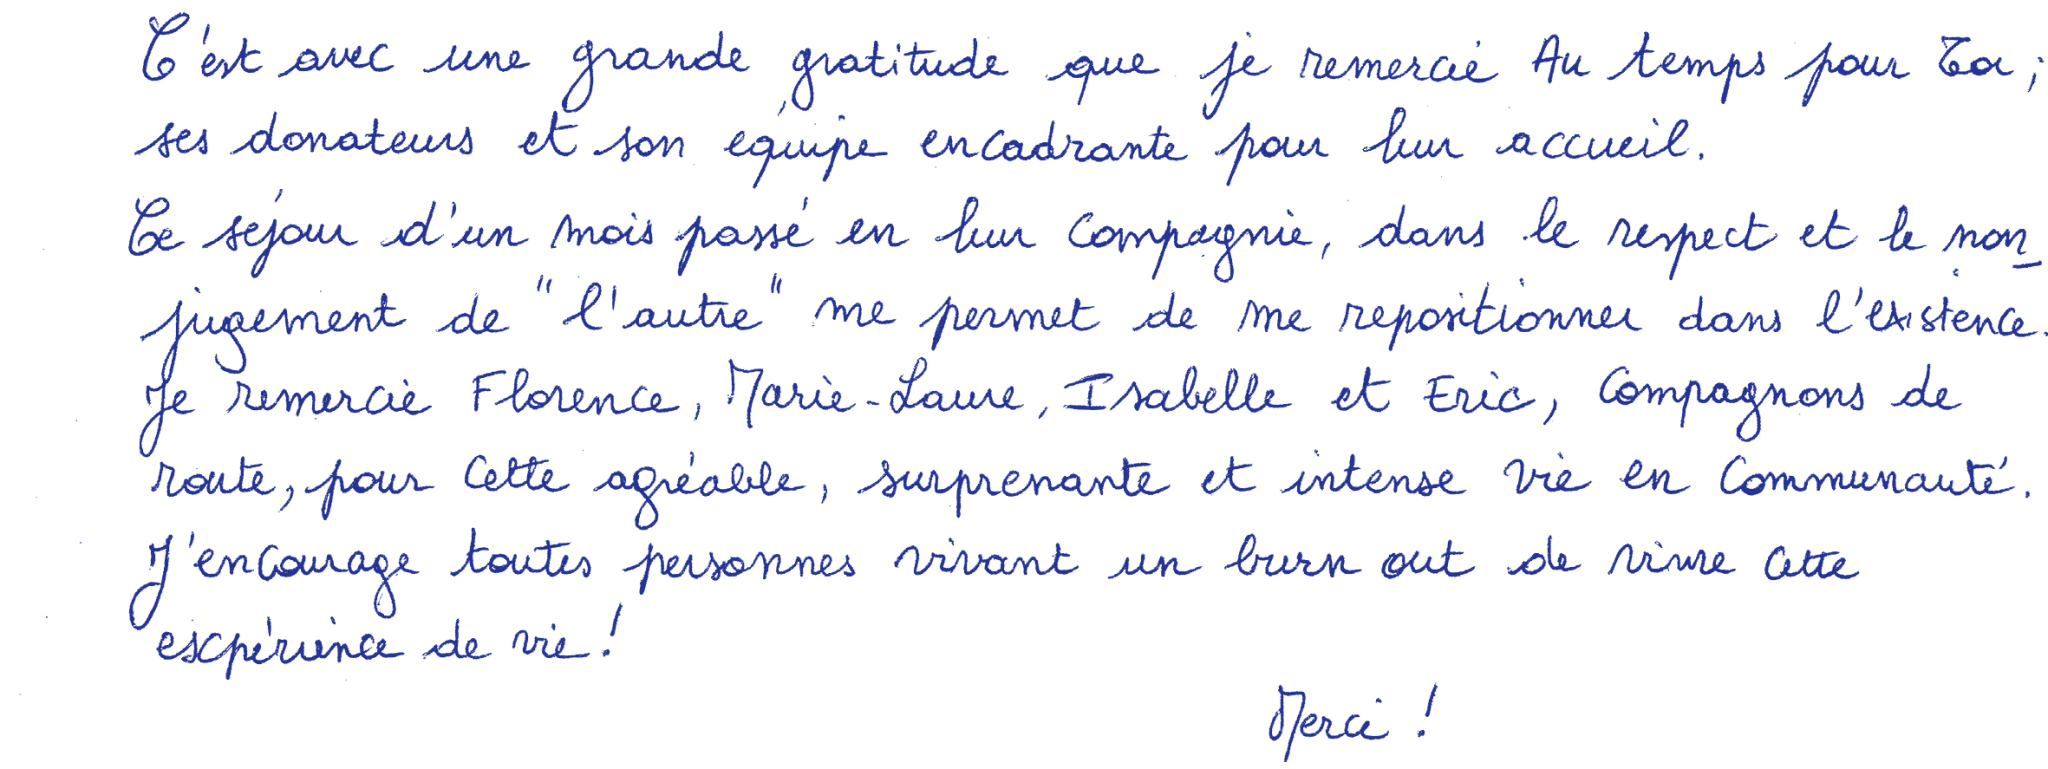 C'est avec une grande gratitude que je remercie Au temps pour Toi,
ses donateurs et son équipe encadrante pour leur accueil.
Ce séjour d'un mois passé en leur compagnie, dans le respect et le non_
jugement de "l'autre" me permet de me repositionner dans l'existence.
Je remercie Florence, Marie-Laure, Isabelle et Eric, compagnons de
route, pour cette agréable, surprenante et intense vie en communauté.
J'encourage toutes personnes vivant un burn out de vivre cette
expérience de vie !
Merci !